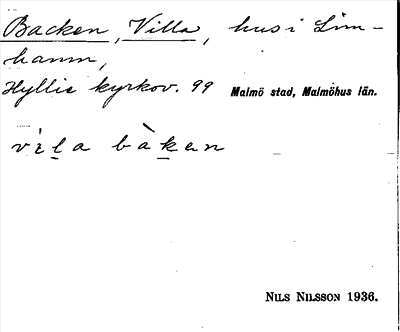 Backen, Villa, hus i Lim-
hamn,
Hyllie kyrkov. 99 Malmö stad, Malmöhus län.
vìla bàkan
NILS NILSSON 1936.